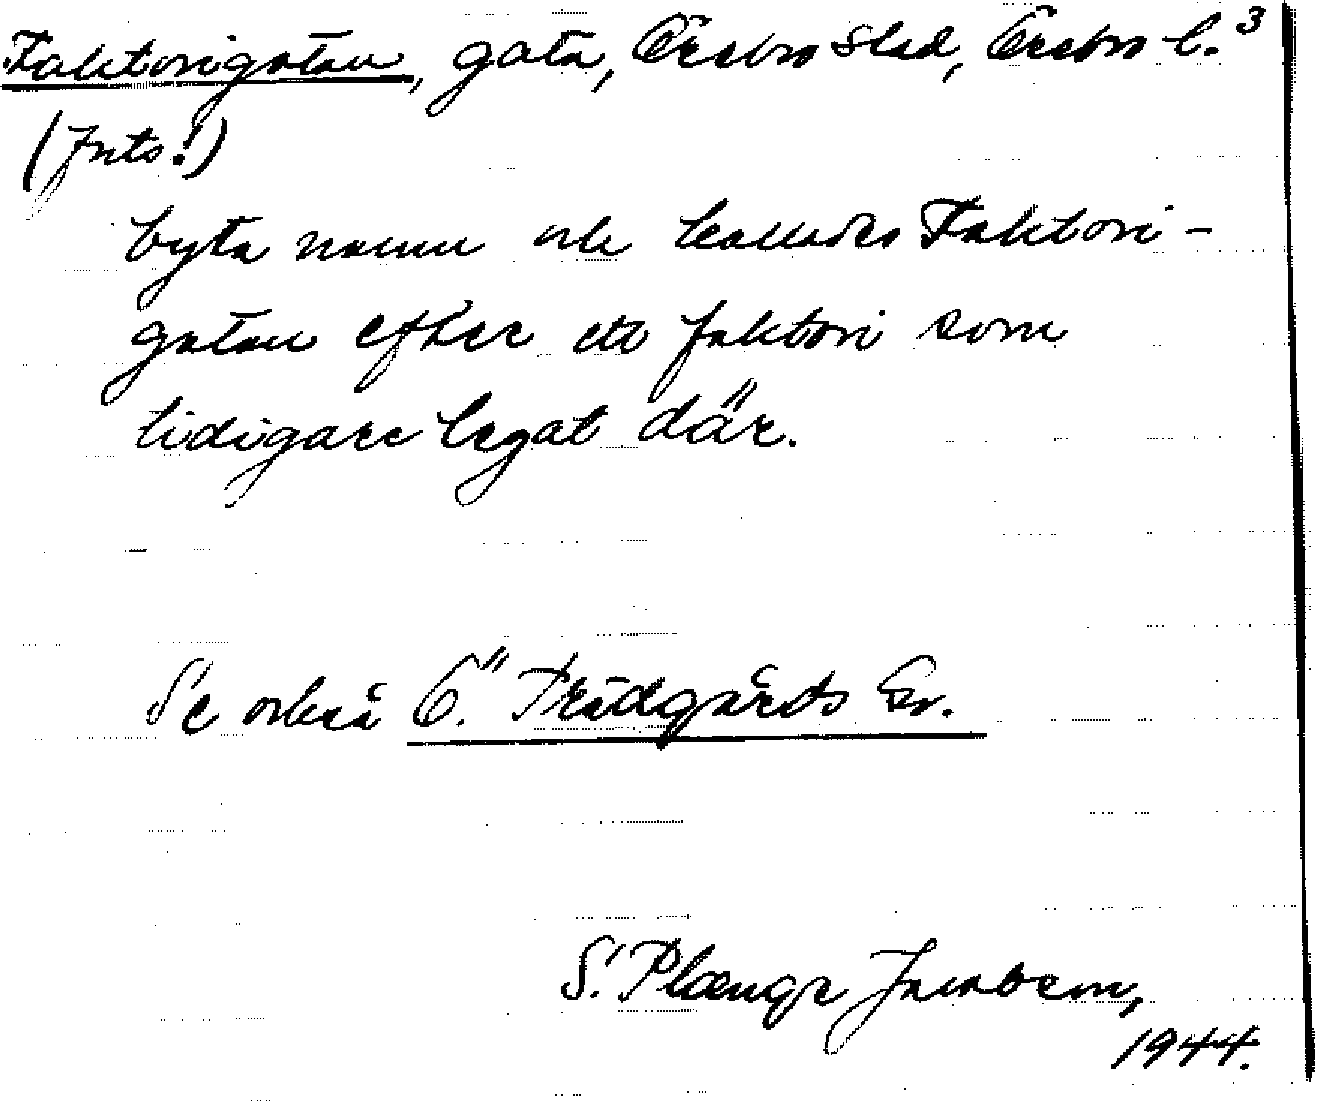 Faktorigatan, gata, Örebro stad, Örebro l. 3
(Forts.!)
byta namn och kallades Faktori-
gatan efter ett faktori som
tidigare legat där.
Se också Ö. Trädgårds Gr.
S. Plænge Jacobson,
1944.